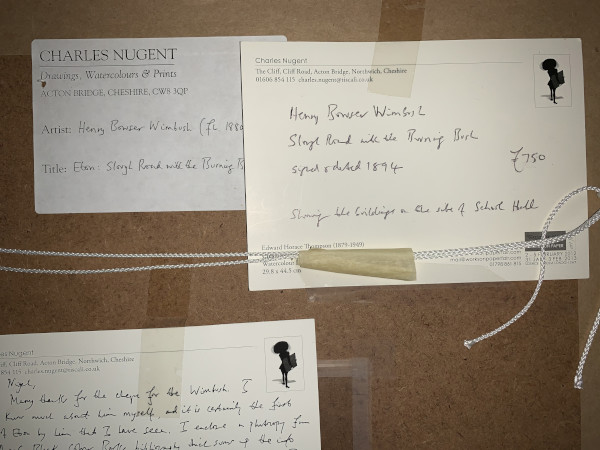 CHARLES NUGENT
Drawings, Watercolours & Prints
ACTON BRIDGE, CHESHIRE, CW8 3QP
Artist: Henry Bowser Wimbush (fl 1880
Title: Eton: Slough Road with the Burning B
Charles Nugent
The Cliff, Cliff Road, Acton Bridge, Northwich, Cheshire
01606 854 115 charles.nugent@tiscali.co.uk
Henry Bowser Wimbush
Slough Road with the Burning Bush
£750
signed & dated 1894
Showing the buildings on the site of School Hall
Edward Horace Thompson (1879-1949)
Watercolour
29.8 x 44.5 cm
Nugent
Cliff Road, Acton Bridge, Northwich, Cheshire
854 115 charles.nugent@tiscali.co.uk
Nigel,
Many thanks for the cheque for the Wimbush. I
know much about him myself, and it is certainly the first
of Eton by him that I have seen. I enclose a photocopy from